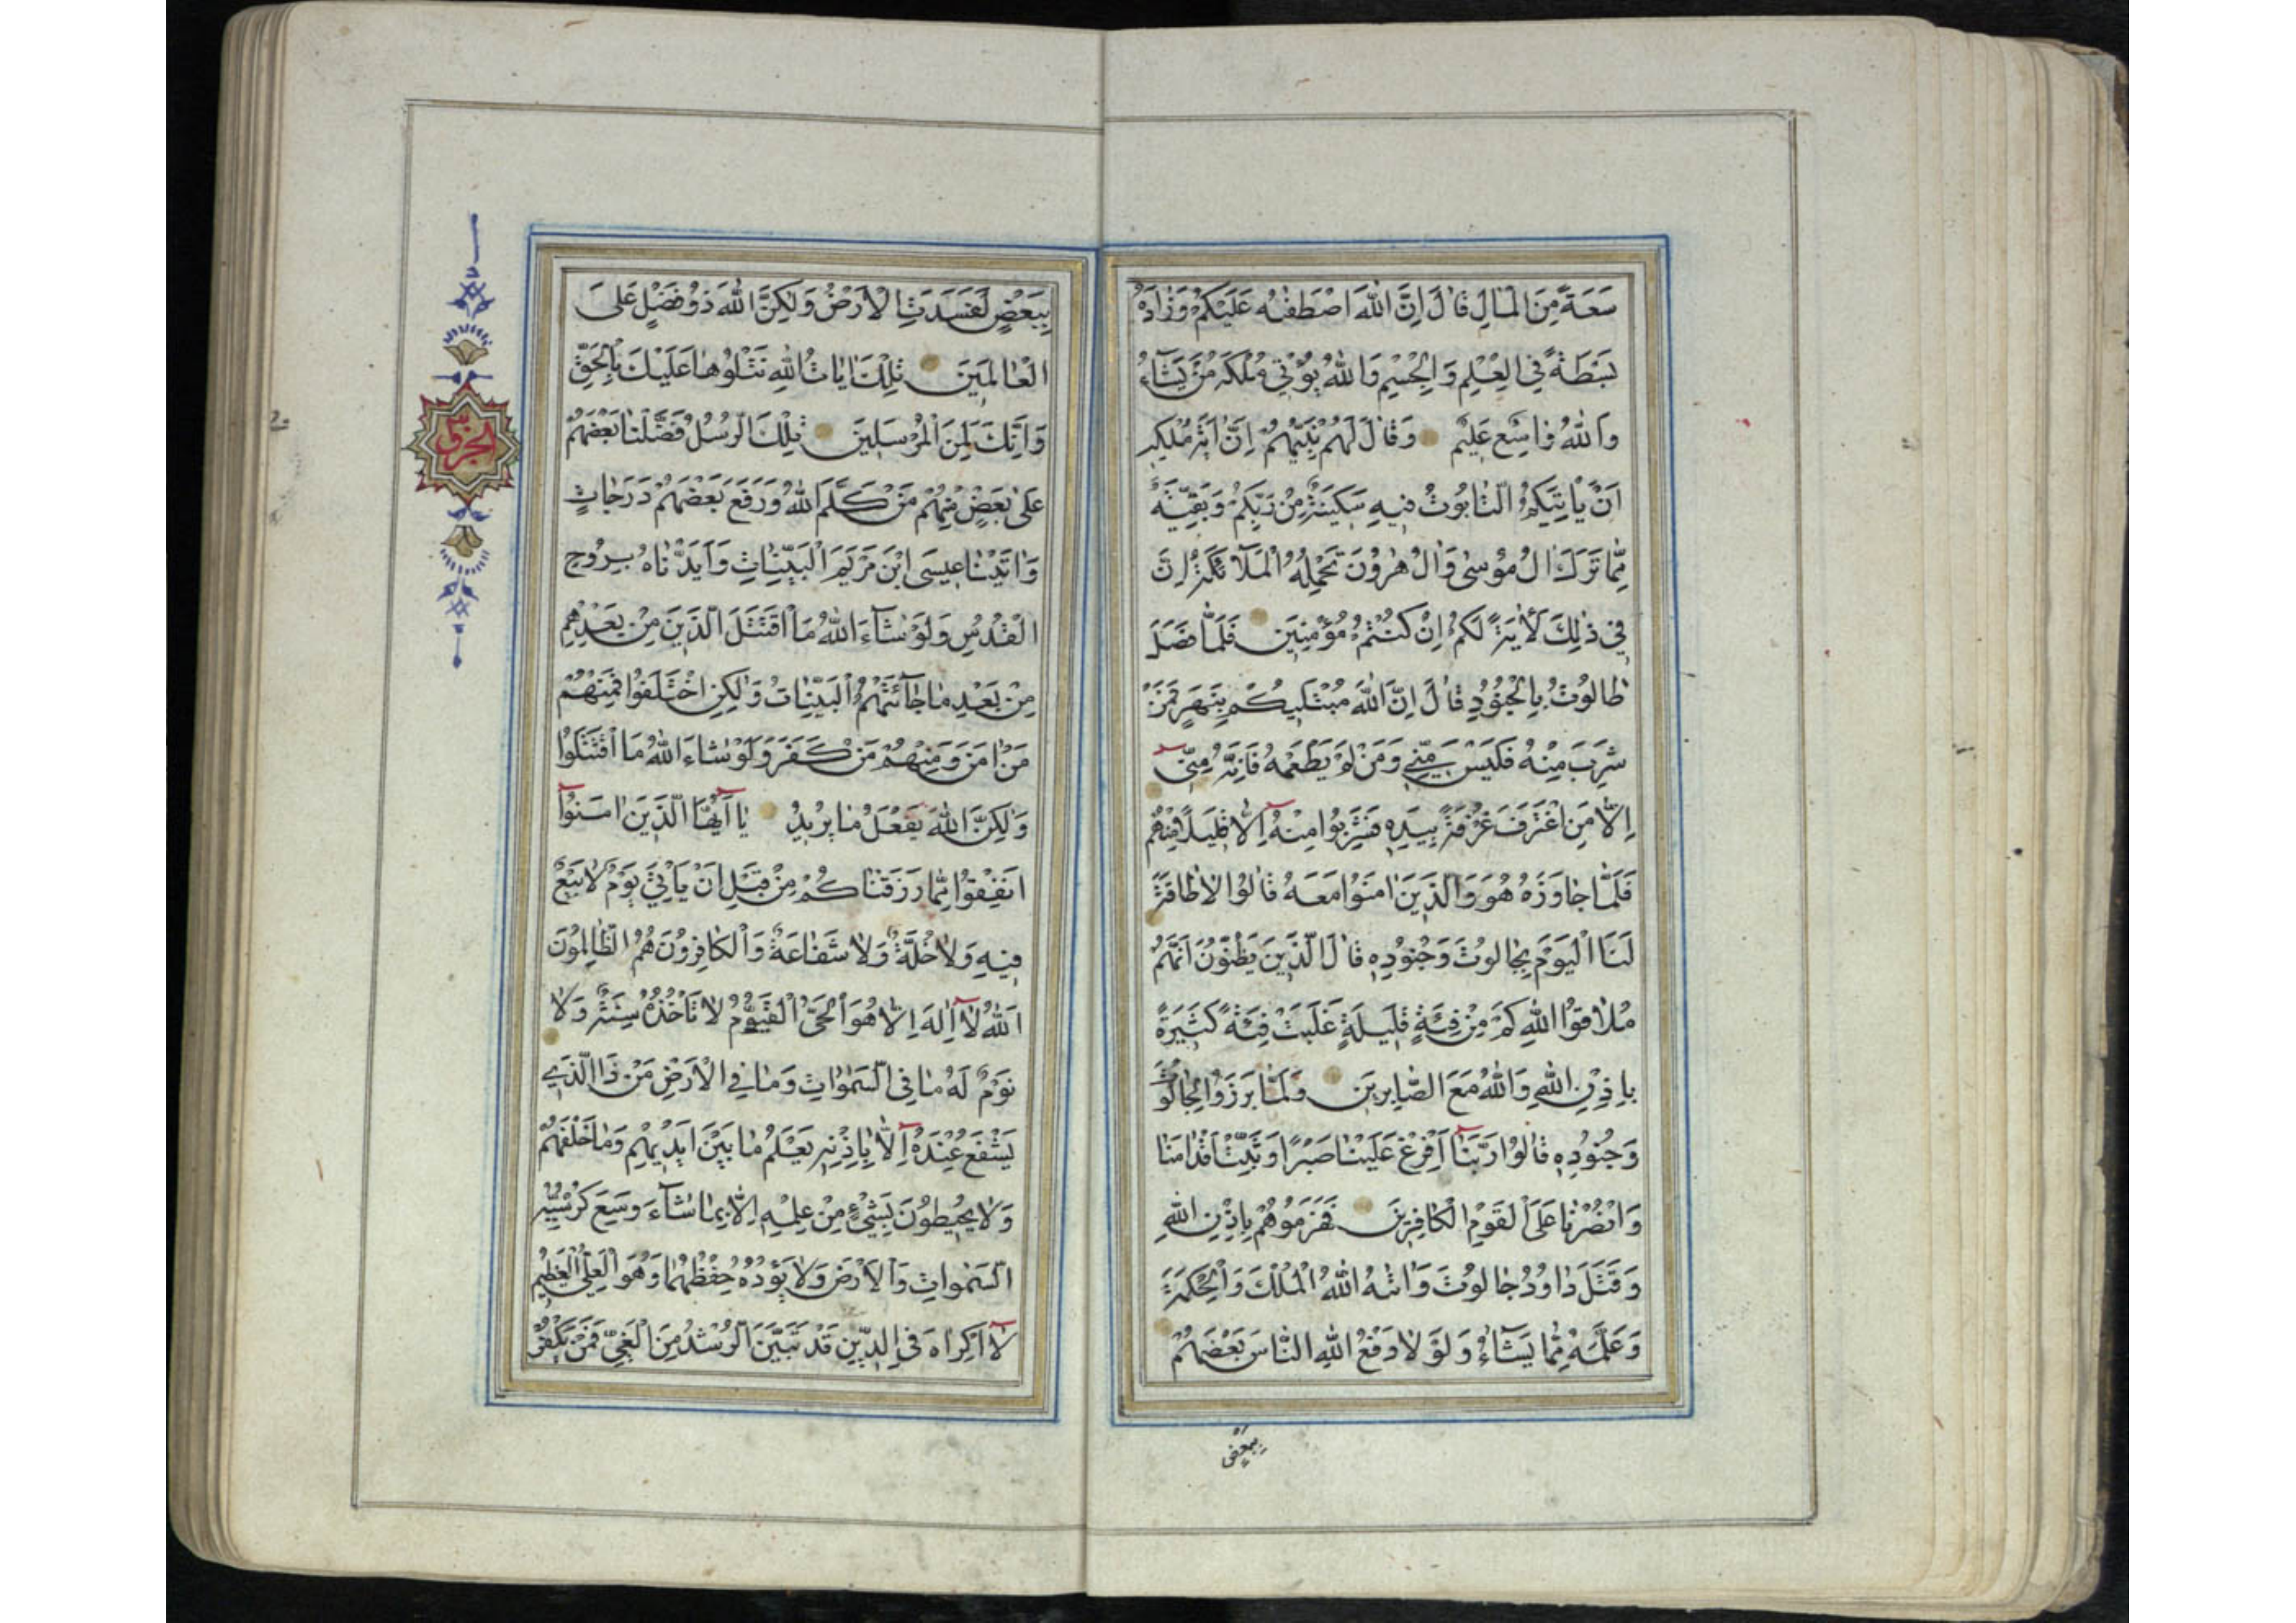 سَعَةً مِنَ الْمَالِ قَالَ اِنَّ اللّٰهَ اصْطَفٰهُ عَلَيْكُمْ وَزَادَهُ
بَسْطَةً فِي الْعِلْمِ وَالْجِسْمِ وَاللّٰهُ يُؤْتِي مُلْكَهُ مَنْ يَشَآءُ
وَاللّٰهُ وَاسِعٌ عَلِيمٌ وَقَالَ لَهُمْ نَبِيُّهُمْ اِنَّ اٰيَةَ مُلْكِهِ
اَنْ يَاْتِيَكُمُ التَّابُوتُ فِيهِ سَكِينَةٌ مِنْ رَبِّكُمْ وَبَقِيَّةٌ
مِمَّا تَرَكَ اٰلُ مُوسٰى وَاٰلُ هٰرُونَ تَحْمِلُهُ الْمَلَآئِكَةُ اِنَّ
فِي ذٰلِكَ لَاٰيَةً لَكُمْ اِنْ كُنْتُمْ مُؤْمِنِينَ فَلَمَّا فَصَلَ
طَالُوتُ بِالْجُنُودِ قَالَ اِنَّ اللّٰهَ مُبْتَلِيكُمْ بِنَهَرٍ فَمَنْ
شَرِبَ مِنْهُ فَلَيْسَ مِنِّي وَمَنْ لَمْ يَطْعَمْهُ فَاِنَّهُ مِنِّي
اِلَّا مَنِ اغْتَرَفَ غُرْفَةً بِيَدِهِ فَشَرِبُوا مِنْهُ اِلَّا قَلِيلًا مِنْهُمْ
فَلَمَّا جَاوَزَهُ هُوَ وَالَّذِينَ اٰمَنُوا مَعَهُ قَالُوا لَا طَاقَةَ
لَنَا الْيَوْمَ بِجَالُوتَ وَجُنُودِهِ قَالَ الَّذِينَ يَظُنُّونَ اَنَّهُمْ
مُلَاقُوا اللّٰهِ كَمْ مِنْ فِئَةٍ قَلِيلَةٍ غَلَبَتْ فِئَةً كَثِيرَةً
بِاِذْنِ اللّٰهِ وَاللّٰهُ مَعَ الصَّابِرِينَ وَلَمَّا بَرَزُوا لِجَالُوتَ
وَجُنُودِهِ قَالُوا رَبَّنَآ اَفْرِغْ عَلَيْنَا صَبْرًا وَثَبِّتْ اَقْدَامَنَا
وَانْصُرْنَا عَلَى الْقَوْمِ الْكَافِرِينَ فَهَزَمُوهُمْ بِاِذْنِ اللّٰهِ
وَقَتَلَ دَاوُدُ جَالُوتَ وَاٰتٰهُ اللّٰهُ الْمُلْكَ وَالْحِكْمَةَ
وَعَلَّمَهُ مِمَّا يَشَآءُ وَلَوْ لَا دَفْعُ اللّٰهِ النَّاسَ بَعْضَهُمْ
بِبَعْضٍ
بِبَعْضٍ لَفَسَدَتِ الْاَرْضُ وَلٰكِنَّ اللّٰهَ ذُو فَضْلٍ عَلَى
الْعَالَمِينَ تِلْكَ اٰيَاتُ اللّٰهِ نَتْلُوهَا عَلَيْكَ بِالْحَقِّ
وَاِنَّكَ لَمِنَ الْمُرْسَلِينَ تِلْكَ الرُّسُلُ فَضَّلْنَا بَعْضَهُمْ
عَلٰى بَعْضٍ مِنْهُمْ مَنْ كَلَّمَ اللّٰهُ وَرَفَعَ بَعْضَهُمْ دَرَجَاتٍ
وَاٰتَيْنَا عِيسَى ابْنَ مَرْيَمَ الْبَيِّنَاتِ وَاَيَّدْنَاهُ بِرُوحِ
الْقُدُسِ وَلَوْ شَآءَ اللّٰهُ مَا اقْتَتَلَ الَّذِينَ مِنْ بَعْدِهِمْ
مِنْ بَعْدِ مَا جَآئَتْهُمُ الْبَيِّنَاتُ وَلٰكِنِ اخْتَلَفُوا فَمِنْهُمْ
مَنْ اٰمَنَ وَمِنْهُمْ مَنْ كَفَرَ وَلَوْ شَاءَ اللّٰهُ مَا اقْتَتَلُوا
وَلٰكِنَّ اللّٰهَ يَفْعَلُ مَا يُرِيدُ يَآ اَيُّهَا الَّذِينَ اٰمَنُوآ
اَنْفِقُوا مِمَّا رَزَقْنَاكُمْ مِنْ قَبْلِ اَنْ يَاْتِيَ يَوْمٌ لَا بَيْعٌ
فِيهِ وَلَا خُلَّةٌ وَلَا شَفَاعَةٌ وَالْكَافِرُونَ هُمُ الظَّالِمُونَ
اَللّٰهُ لَآ اِلٰهَ اِلَّا هُوَ الْحَيُّ الْقَيُّومُ لَا تَاْخُذُهُ سِنَةٌ وَلَا
نَوْمٌ لَهُ مَا فِي السَّمٰوَاتِ وَمَا فِي الْاَرْضِ مَنْ ذَا الَّذِي
يَشْفَعُ عِنْدَهُ اِلَّا بِاِذْنِهِ يَعْلَمُ مَا بَيْنَ اَيْدِيهِمْ وَمَا خَلْفَهُمْ
وَلَا يُحِيطُونَ بِشَيْءٍ مِنْ عِلْمِهِ اِلَّا بِمَا شَآءَ وَسِعَ كُرْسِيُّهُ
السَّمٰوَاتِ وَالْاَرْضَ وَلَا يَؤُدُهُ حِفْظُهُمَا وَهُوَ الْعَلِيُّ الْعَظِيمُ
لَآ اِكْرَاهَ فِي الدِّينِ قَدْ تَبَيَّنَ الرُّشْدُ مِنَ الْغَيِّ فَمَنْ يَكْفُرْ